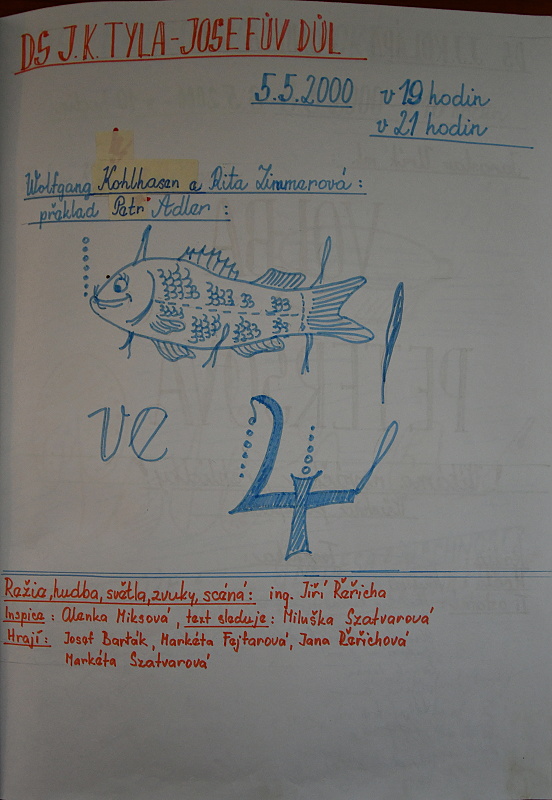 DS J.K. TYLA - JOSEFŮV DŮL
5.5.2000 v 19 hodin
v 21 hodin
Wolfgang Kohlhasen a Rita Zimmerová:
překlad Petr Adler:
ve
4
Režie, hudba, světla, zvuky, scéná: ing. Jiří Řeřicha
Inspice: Alenka Miksová, text sleduje: Miluška Szatvarová
Hrají: Josef Barták, Markéta Fejfarová, Jana Řeřichová
Markéta Szatvarová